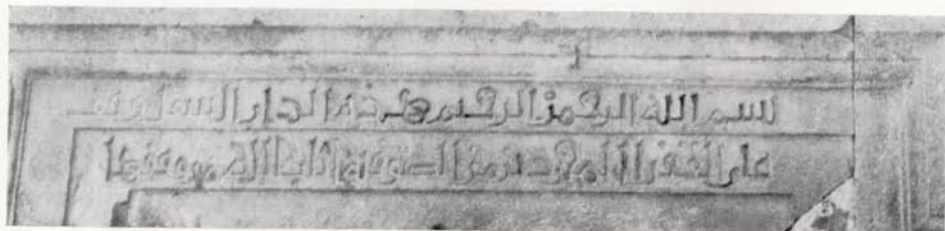 بسم الله الرحمن الرحيم هذه الدار السفل وقف
على الفقرا المجردين من الصوفية اثاب الله من وقفها